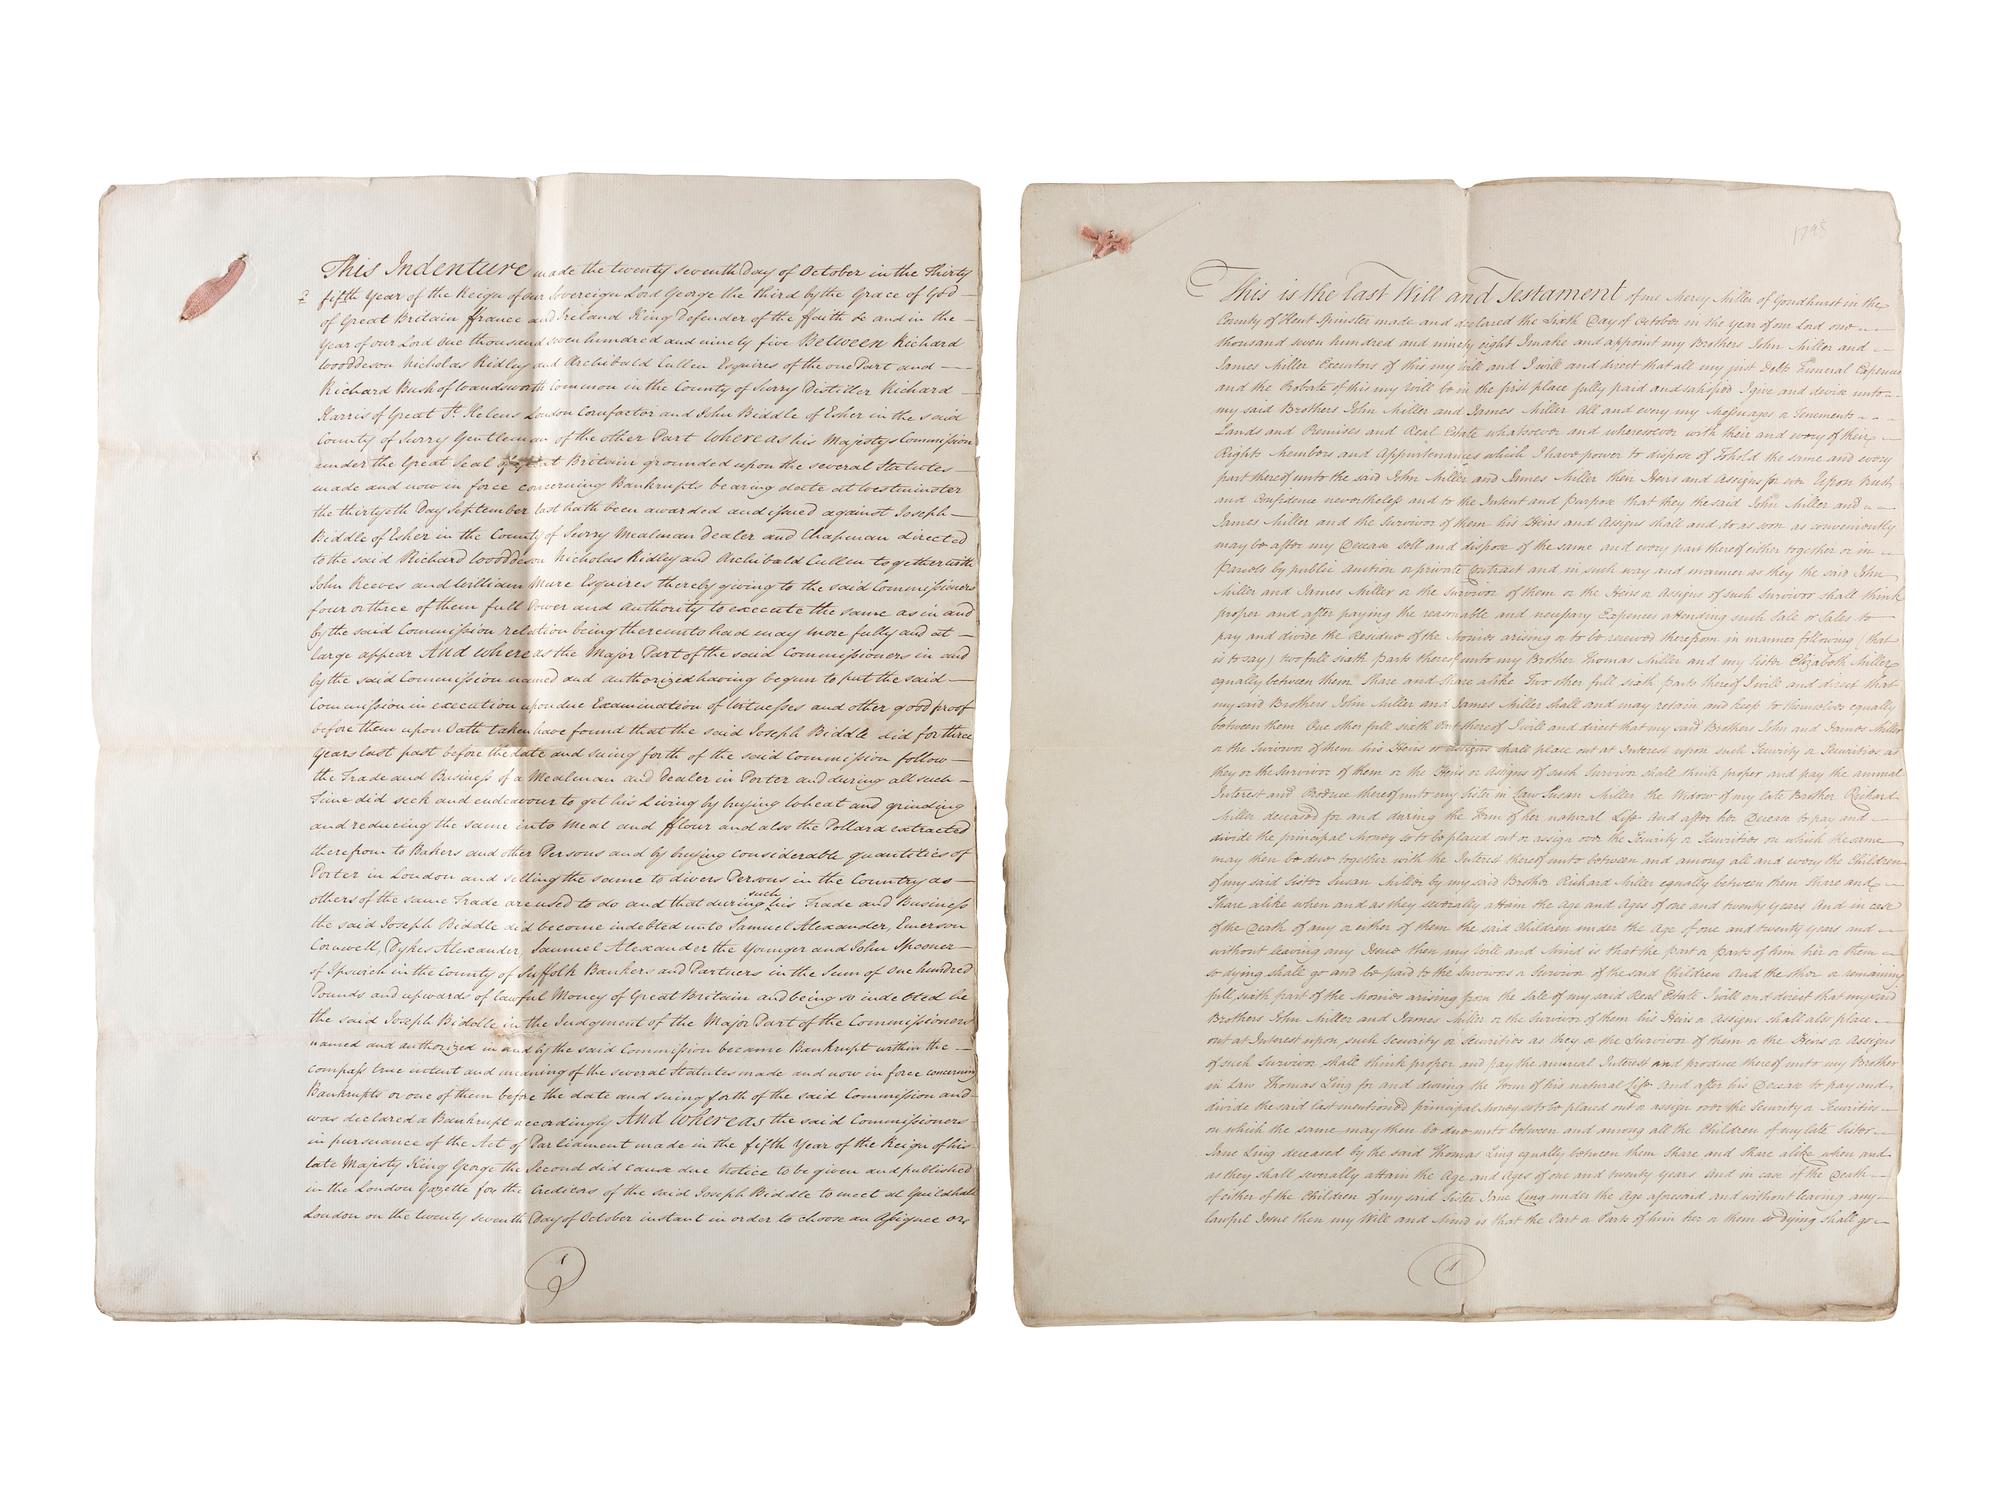 This Indenture made the twenty seventh Day of October in the Thirty
fifth Year of the Reign of our Sovereign Lord George the third by the Grace of God
of Great Britain ffrance and Ireland King Defender of the ffaith &c and in the
Year of our Lord One thousand seven hundred and ninety five Between Richard
Wooddeson Nicholas Ridley and Archibald Cullen Esquires of the one Part and
Richard Bush of Wandsworth Common in the County of Surry Distiller Richard
Harris of Great St. Helens London Cornfactor and John Biddle of Esher in the said
County of Surry Gentleman of the other Part Whereas his Majestys Commission
under the Great Seal of Great Britain grounded upon the several Statutes
made and now in force concerning Bankrupts bearing date at Westminster
the thirtyeth Day September last hath been awarded and issued against Joseph
Biddle of Esher in the County of Surry Mealman Dealer and Chapman directed
to the said Richard Wooddeson Nicholas Ridley and Archibald Cullen together with
John Reeves and William Mure Esquires thereby giving to the said Commissioners
four or three of them full Power and Authority to execute the same as in and
by the said Commission relation being thereunto had may more fully and at
large appear And whereas the Major Part of the said Commissioners in and
by the said Commission named and authorized having begun to put the said
Commission in execution upon due Examination of Witnesses and other good proof
before them upon Oath taken have found that the said Joseph Biddle did for three
Years last past before the date and suing forth of the said Commission follow
the Trade and Business of a Mealman and Dealer in Porter and during all such
Time did seek and endeavour to get his Living by buying Wheat and grinding
and reducing the same into Meal and fflour and also the Pollard extracted
therefrom to Bakers and other Persons and by buying considerable quantities of
Porter in London and selling the same to divers Persons in the Country as
others of the same Trade are used to do and that during such his Trade and Business
the said Joseph Biddle did become indebted unto Samuel Alexander, Emerson
Cornwell, Dykes Alexander, Samuel Alexander the Younger and John Spooner
of Ipswich in the County of Suffolk Bankers and Partners in the Sum of One hundred
Pounds and upwards of lawful Money of Great Britain and being so indebted he
the said Joseph Biddle in the Judgment of the Major Part of the Commissioners
named and authorized in and by the said Commission became Bankrupt within the
compass true intent and meaning of the several Statutes made and now in force concerning
Bankrupts or one of them before the date and suing forth of the said Commission and
was declared a Bankrupt accordingly And whereas the said Commissioners
in pursuance of the Act of Parliament made in the fifth Year of the Reign of his
late Majesty King George the Second did cause due Notice to be given and published
in the London Gazette for the Credicors of the said Joseph Biddle to meet at Guildhall
London on the twenty seventh Day of October instant in order to choose an Assignee or
1
1798
This is the last Will and Testament of me Mercy Miller of Goudhurst in the
County of Kent Spinster made and declared the sixth Day of October in the year of our Lord one
thousand seven hundred and ninety eight I make and appoint my Brothers John Miller and
James Miller Executors of this my Will and I will and direct that all my just Debts Funeral Expences
and the Probate of this my Will be in the first place fully paid and satisfied I give and devise unto
my said Brothers John Miller and James Miller all and every my Messuages or Tenements
Lands and Premises and Real Estate whatsoever and wheresoever with their and every of their
Rights Members and Appurtenances which I have power to dispose of To hold the same and every
part thereof unto the said John Miller and James Miller their Heirs and Assigns for ever Upon trust
and Confidence nevertheless and to the Intent and Purpose that they the said John Miller and
James Miller and the Survivor of them his Heirs and Assigns shall and do as soon as conveniently
may be after my Decease sell and dispose of the same and every part thereof either together or in
Parcels by public Auction or private Contract and in such way and manner as they the said John
Miller and James Miller or the Survivor of them or the Heirs or Assigns of such Survivor shall think
proper and after paying the reasonable and necessary Expences attending such Sale or Sales to
pay and divide the Residue of the Monies arising or to be received therefrom in manner following (that
is to say) two full sixth Parts thereof unto my Brother Thomas Miller and my Sister Elizabeth Miller
equally between them Share and Share alike Two other full sixth Parts thereof I will and direct that
my said Brothers John Miller and James Miller shall and may retain and keep to themselves equally
between them One other full sixth Part thereof I will and direct that my said Brothers John and James Miller
or the Survivor of them his Heirs or Assigns shall place out at Interest upon such Security or Securities as
they or the Survivor of them or the Heirs or Assigns of such Survivor shall think proper and pay the annual
Interest and Produce thereof unto my Sister in Law Susan Miller the Widow of my late Brother Richard
Miller deceased for and during the Term of her natural Life And after her Decease to pay and
divide the principal Money so to be placed out or assign over the Security or Securities on which the same
may then be due together with the Interest thereof unto between and among all and every the Children
of my said Sister Susan Miller by my said Brother Richard Miller equally between them Share and
Share alike when and as they severally attain the Age and Ages of one and twenty years And in case
of the Death of any or either of them the said Children under the Age of one and twenty years and
without leaving any Issue then my Will and Mind is that the part or parts of him her or them
so dying shall go and be paid to the Survivors or Survivor of the said Children And the other or remaining
full sixth part of the Monies arising from the Sale of my said Real Estate I will and direct that my said
Brothers John Miller and James Miller or the Survivor of them his Heirs or Assigns shall also place
out at Interest upon such Security or Securities as they or the Survivor of them or the Heirs or Assigns
of such Survivor shall think proper and pay the annual Interest and produce thereof unto my Brother
in Law Thomas Ling for and during the Term of his natural Life And after his Decease to pay and
divide the said last mentioned principal Money so to be placed out or assign over the Security or Securities
on which the same may then be due unto between and among all the Children of my late Sister
Jane Ling deceased by the said Thomas Ling equally between them Share and Share alike when and
as they shall severally attain the Age and Ages of one and twenty years And in case of the Death
of either of the Children of my said Sister Jane Ling under the Age aforesaid and without leaving any
lawful Issue then my Will and Mind is that the Part or Parts of him her or them so dying shall go
1